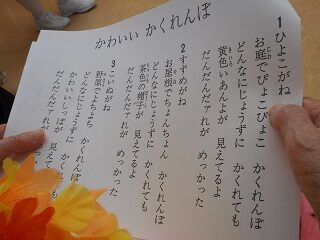 かわいい かくれんぼ
1 ひよこがね
お庭でぴょこぴょこ かくれんぼ
どんなにじょうずに かくれても
黄色いあんよが 見えてるよ
だんだんだァれが めっかった
2 すずめがね
お屋根でちょんちょん かくれんぼ
どんなにじょうずに かくれても
茶色の帽子が 見えてるよ
だんだんだァれが めっかった
3 こいぬがね
野原でよちよち かくれんぼ
どんなにじょうずに かくれても
かわいいしっぽが 見えてるよ
だんだんだァれが めっかった